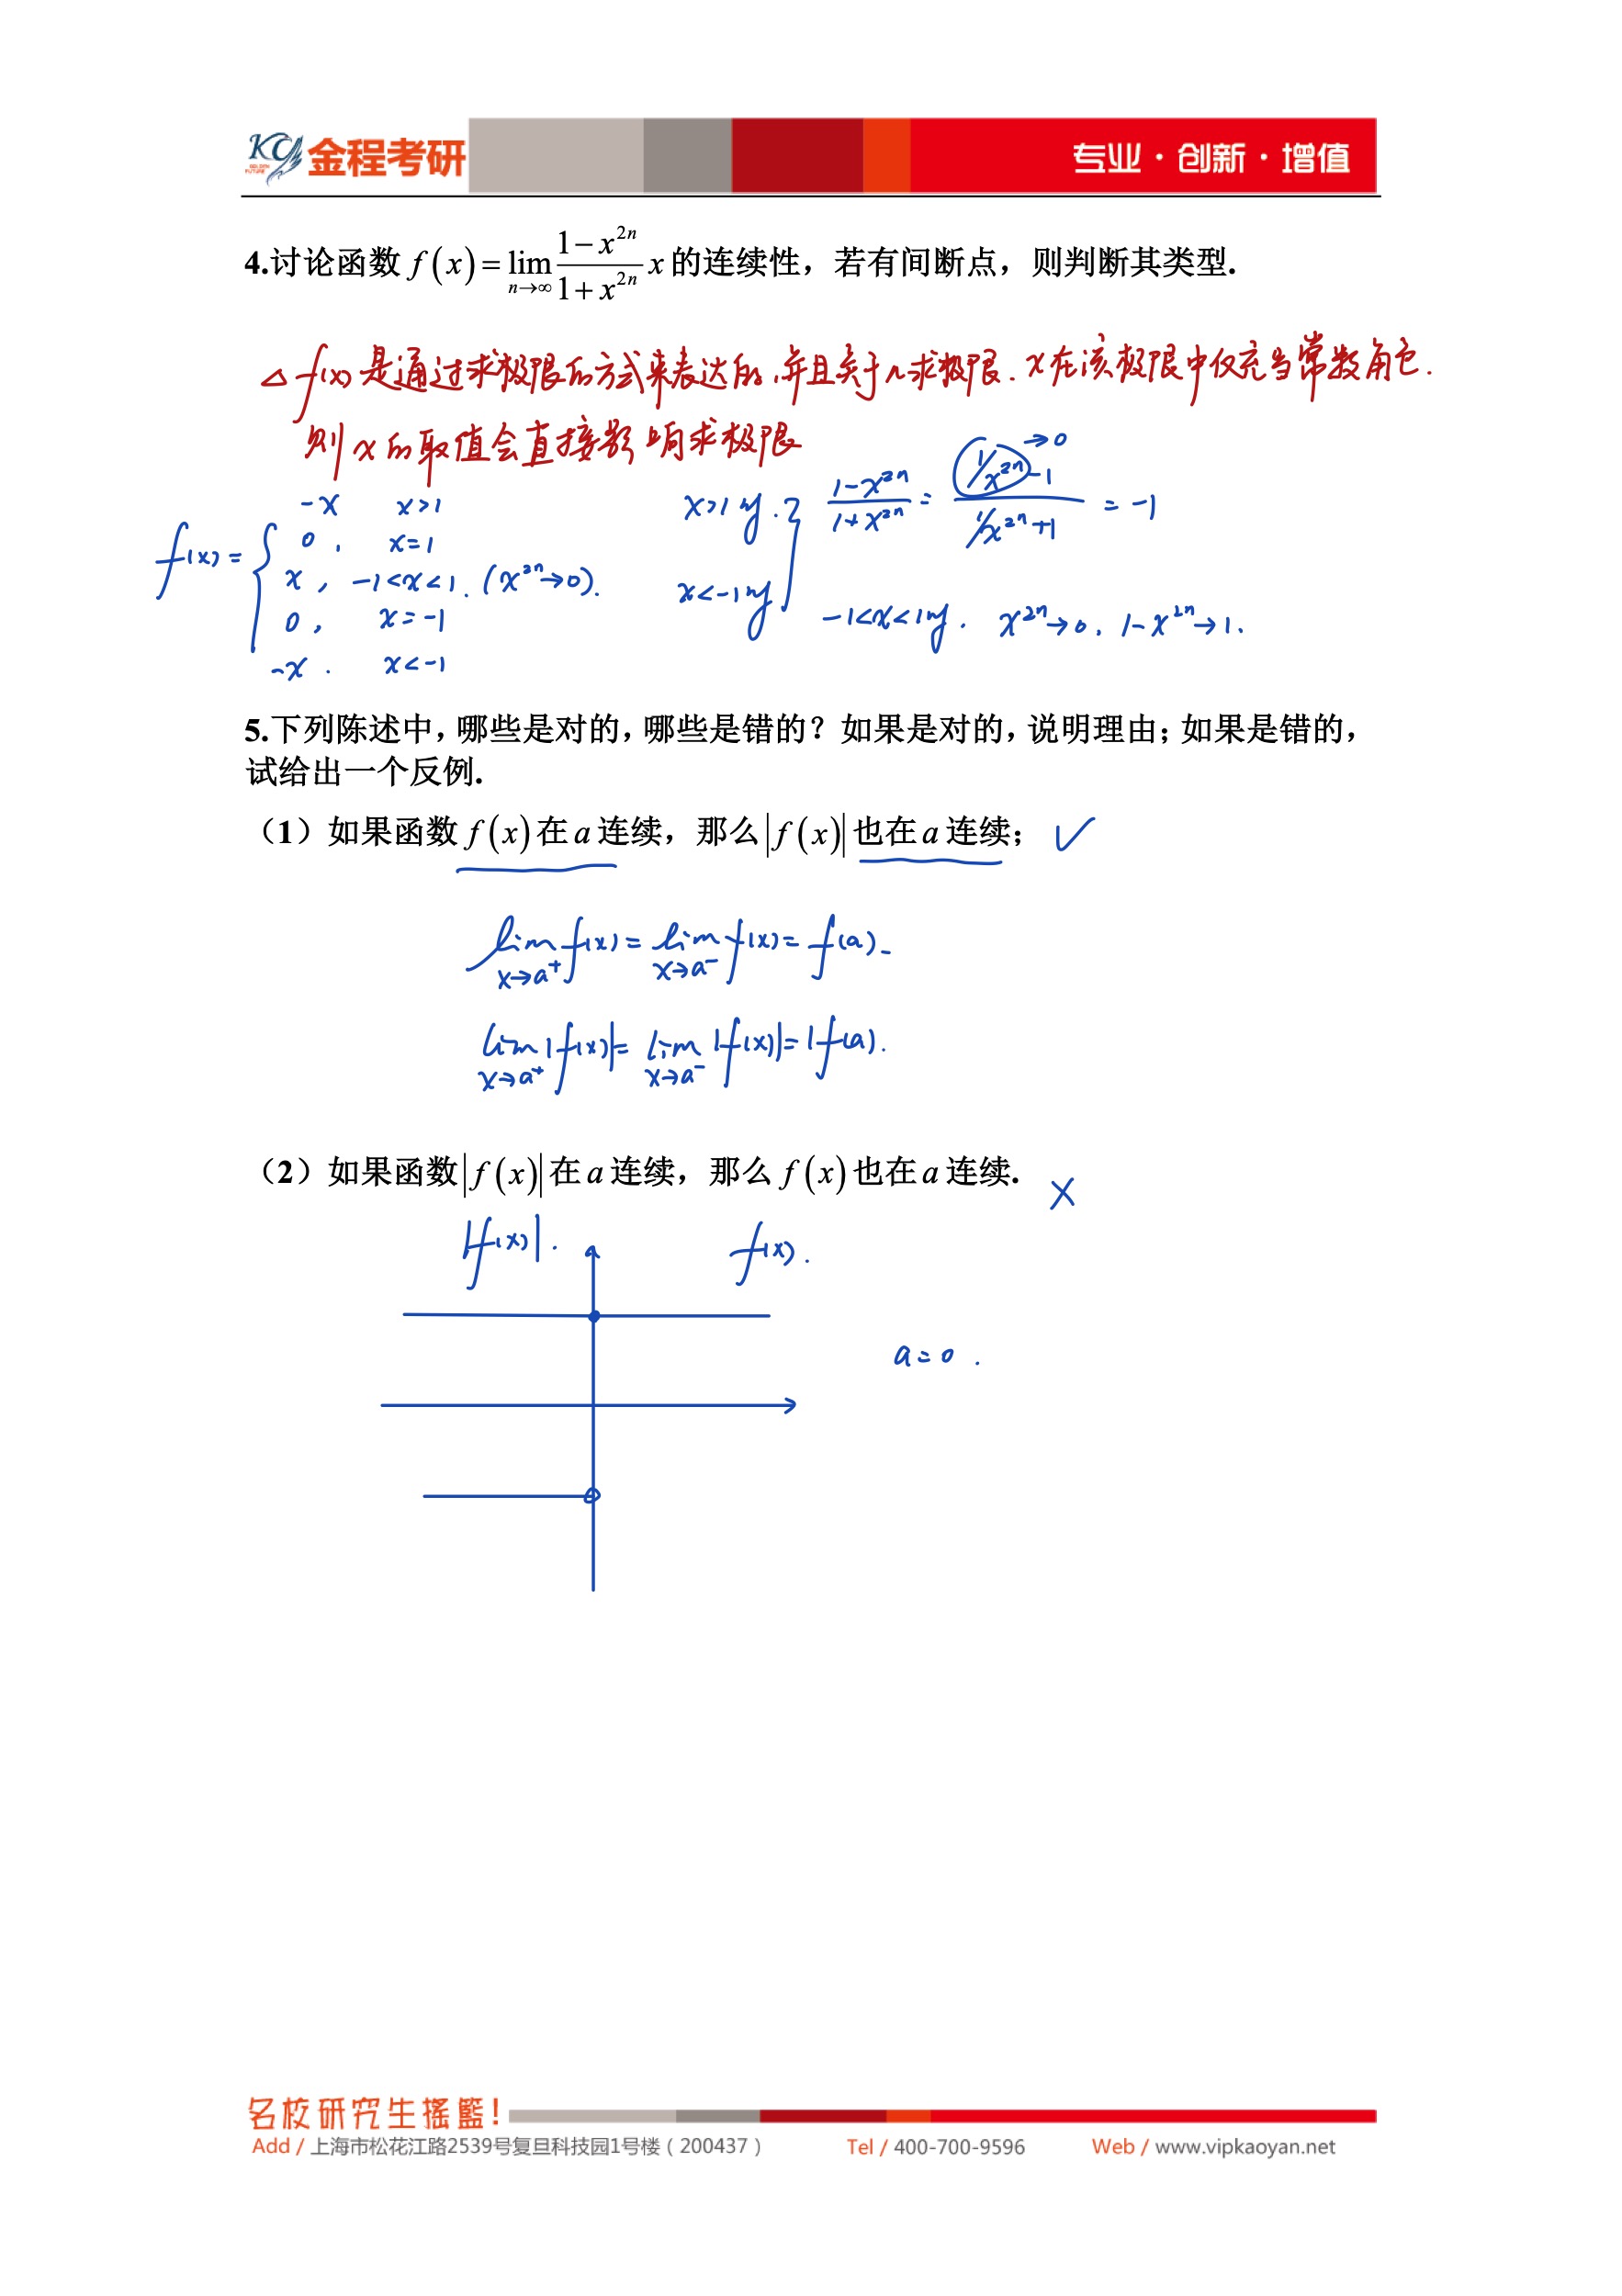 KC 金程考研 专业·创新·增值
GOLDEN FUTURE
4.讨论函数 f(x)=lim_{n→∞} (1−x^{2n})/(1+x^{2n}) x 的连续性，若有间断点，则判断其类型.
△ f(x) 是通过求极限的方式来表达的,并且关于n求极限. x在该极限中仅充当常数角色.
则 x 的取值会直接影响求极限
f(x) = { -x x>1
0, x=1
x, -1<x<1. (x^{2n}→0).
0, x=-1
-x. x<-1
x>1时.
x<-1时
(1-x^{2n})/(1+x^{2n}) = (1/x^{2n} -1)/(1/x^{2n}+1) = -1
→0
-1<x<1时. x^{2n}→0, 1-x^{2n}→1.
5.下列陈述中，哪些是对的，哪些是错的？如果是对的，说明理由；如果是错的，
试给出一个反例.
（1）如果函数 f(x) 在 a 连续，那么 |f(x)| 也在 a 连续； ✓
lim_{x→a⁺} f(x) = lim_{x→a⁻} f(x) = f(a).
lim_{x→a⁺} |f(x)| = lim_{x→a⁻} |f(x)| = |f(a).
（2）如果函数 |f(x)| 在 a 连续，那么 f(x) 也在 a 连续. ×
|f(x)|. f(x).
a=0.
名校研究生摇篮！
Add / 上海市松花江路2539号复旦科技园1号楼（200437） Tel / 400-700-9596 Web / www.vipkaoyan.net